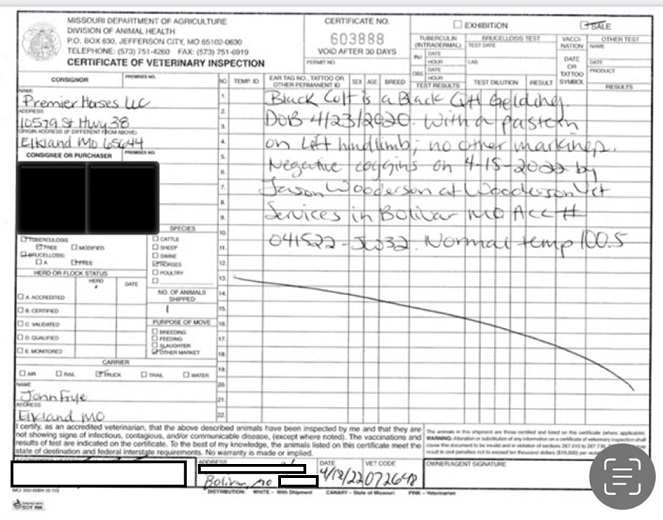 MISSOURI DEPARTMENT OF AGRICULTURE
DIVISION OF ANIMAL HEALTH
P.O. BOX 630, JEFFERSON CITY, MO 65102-0630
TELEPHONE: (573) 751-4260 FAX: (573) 751-6919
CERTIFICATE OF VETERINARY INSPECTION
CERTIFICATE NO.
603888
VOID AFTER 30 DAYS
PERMIT NO.
EXHIBITION
SALE
TUBERCULIN (INTRADERMAL)
INJ. DATE
HOUR
OBS. DATE
HOUR
TEST RESULTS
BRUCELLOSIS TEST
TEST DATE
LAB
TEST DILUTION
RESULT
VACCI-NATION
DATE OR TATTOO SYMBOL
OTHER TEST
NAME
DATE
PRODUCT
RESULTS
CONSIGNOR
PREMISES NO.
NAME
Premier Horses LLC
ADDRESS
10579 St Hwy 38
ORIGIN ADDRESS (IF DIFFERENT FROM ABOVE)
Elkland Mo 65644
CONSIGNEE OR PURCHASER
PREMISES NO.
NO.
TEMP. ID
EAR TAG NO., TATTOO OR OTHER PERMANENT ID
SEX
AGE
BREED
1. Black Colt is a Black Gelding.
2. DOB 4/23/2020. With a pastern
3.
4. on left hindlimb; no other markings.
5.
6. Negative coggins on 4-15-2022 by
7. Jason Wooderson at Wooderson Vet
8.
9. Services in Bolivar MO Acc #
10.
11. 041522-JW32. Normal temp 100.5
12.
13.
14.
15.
16.
17.
18.
19.
20.
21.
22.
TUBERCULOSIS
FREE
MODIFIED
BRUCELLOSIS:
A
FREE
SPECIES
CATTLE
SHEEP
SWINE
HORSES
POULTRY
HERD OR FLOCK STATUS
HERD #
DATE
A. ACCREDITED
B. CERTIFIED
C. VALIDATED
D. QUALIFIED
E. MONITORED
NO. OF ANIMALS SHIPPED
1
PURPOSE OF MOVE
BREEDING
FEEDING
SLAUGHTER
OTHER MARKET
CARRIER
AIR
RAIL
TRUCK
TRAIL
WATER
NAME
John Frye
ADDRESS
Elkland MO
I certify, as an accredited veterinarian, that the above described animals have been inspected by me and that they are
not showing signs of infectious, contagious, and/or communicable disease, (except where noted). The vaccinations and
results of test are indicated on the certificate. To the best of my knowledge, the animals listed on this certificate meet the
state of destination and federal interstate requirements. No warranty is made or implied.
The animals in this shipment are those certified and listed on this certificate (where applicable).
WARNING: Alteration or substitution of any information on a certificate of veterinary inspection shall
cause this document to be invalid and in violation of sections 267.010 to 267.
result in civil penalties not to exceed ten thousand dollars ($10,000) per
ADDRESS
Bolivar, Mo
DATE
4/18/22
VET CODE
072648
OWNER/AGENT SIGNATURE
DISTRIBUTION: WHITE – With Shipment CANARY – State of Missouri PINK – Veterinarian
SOY INK